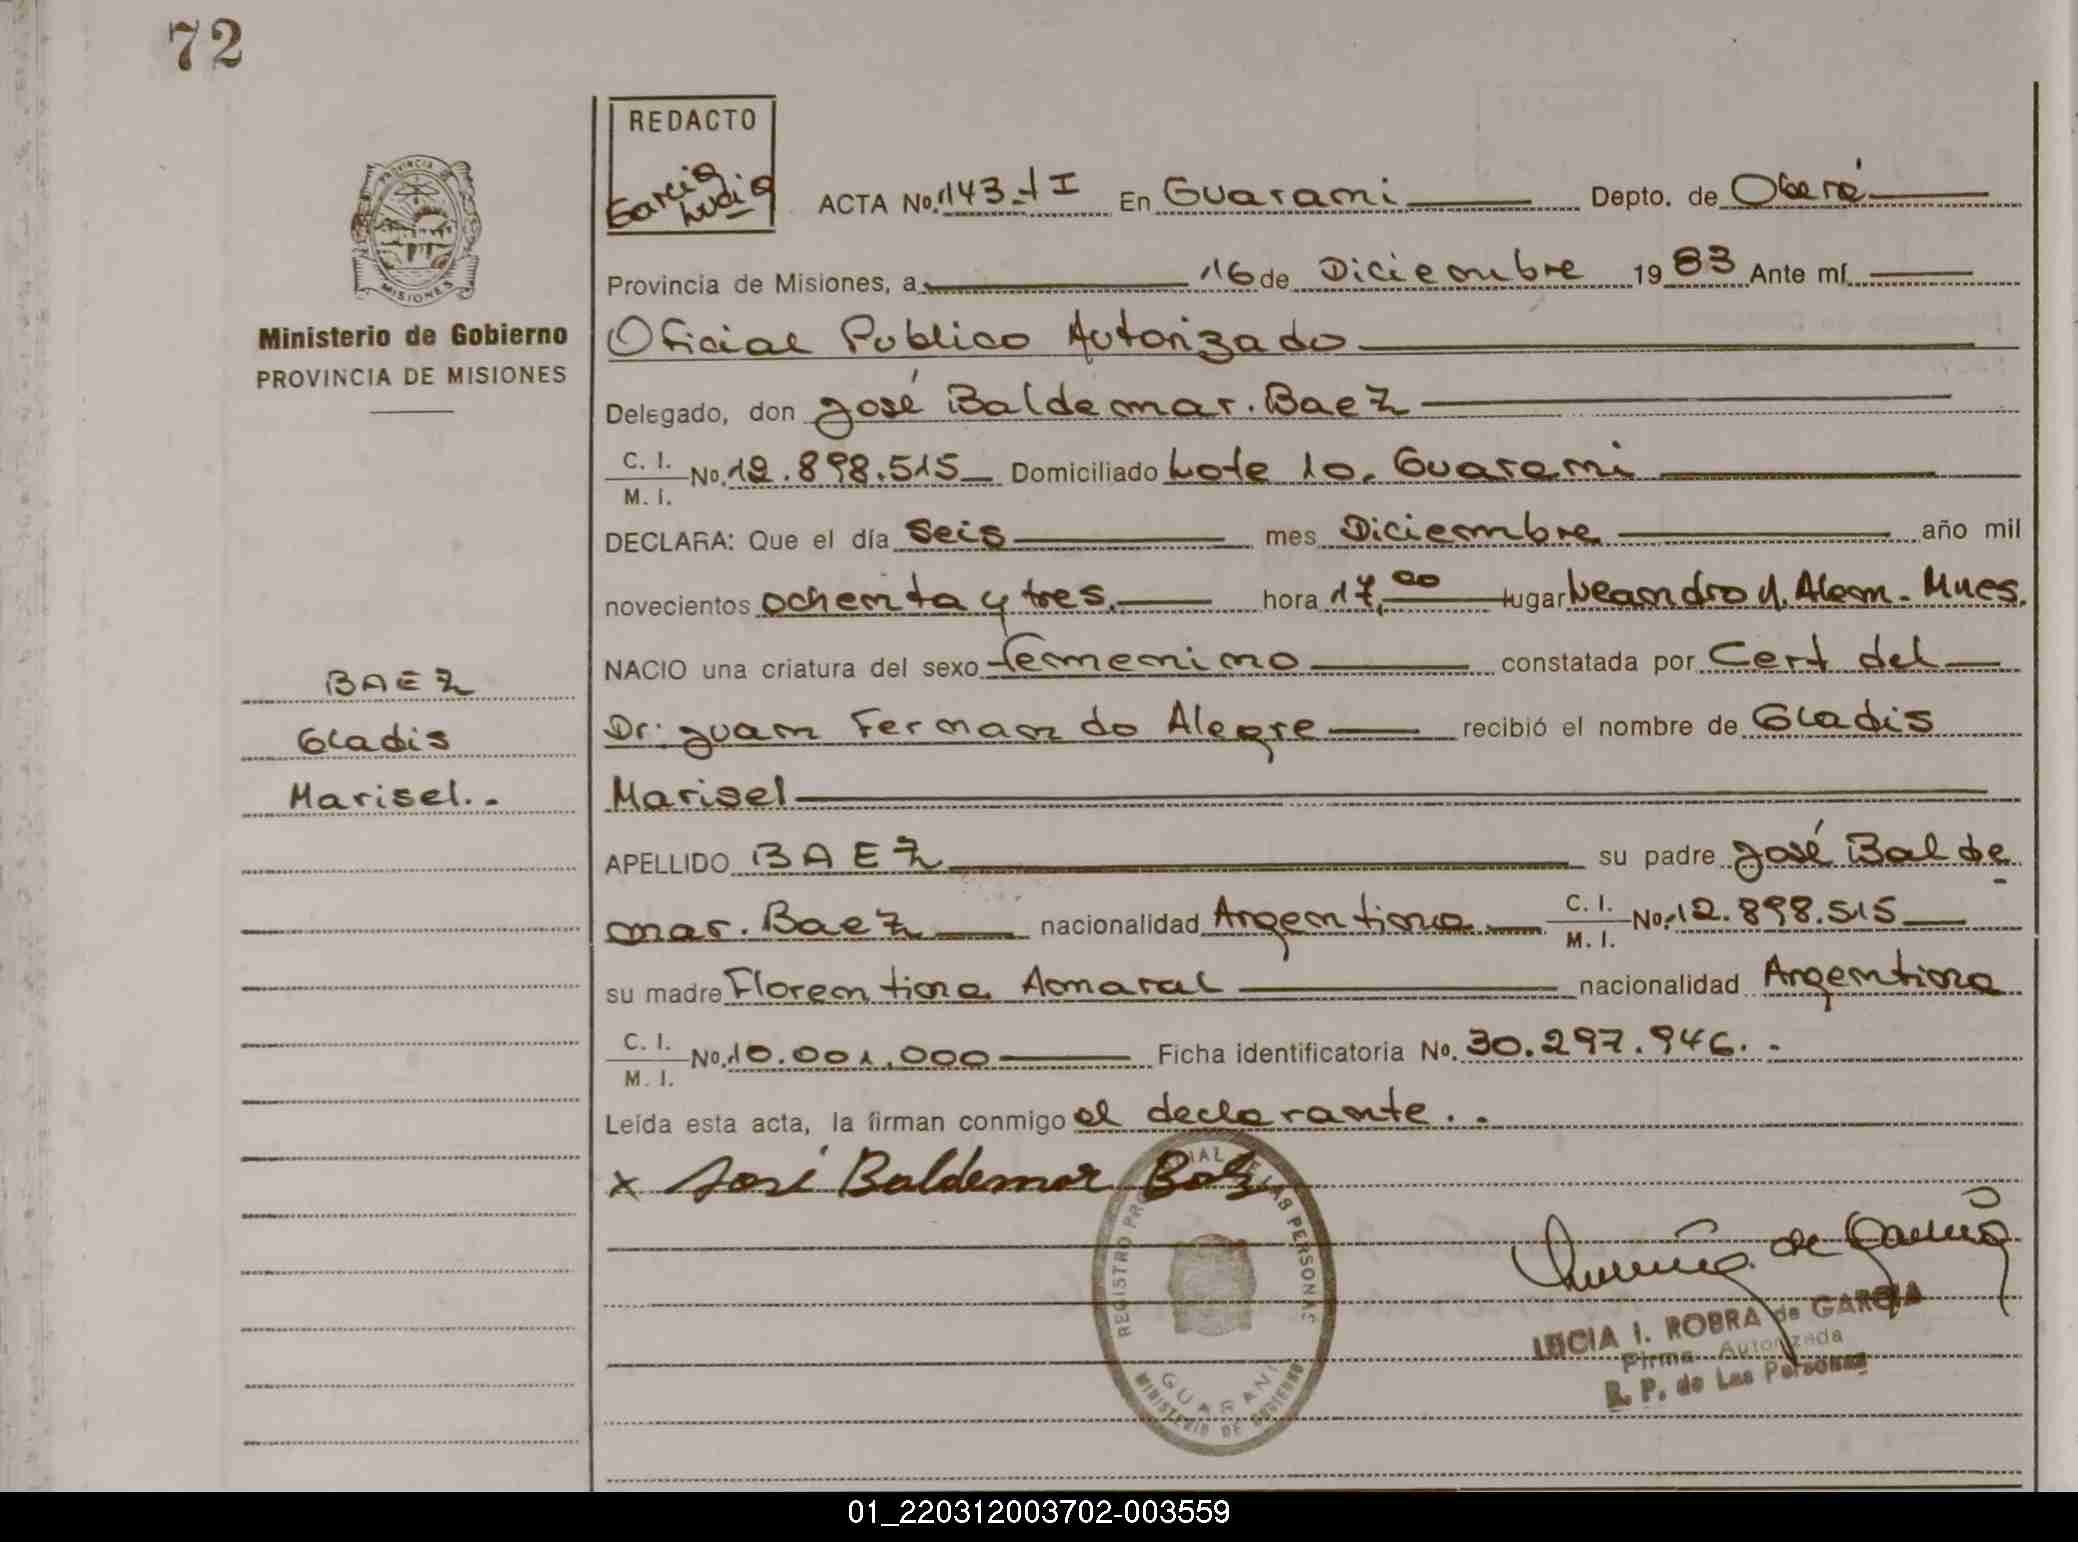 72
REDACTO
Garcia
Lucia
ACTA No. 143-I En Guarani Depto. de Oberá
Provincia de Misiones, a 16 de Diciembre 1983 Ante mí
Oficial Publico Autorizado
Delegado, don José Baldemar. Baez
C. I.
M. I. No. 12.898.515 Domiciliado Lote 10. Guarani
DECLARA: Que el día Seis mes Diciembre año mil
novecientos ochenta y tres. hora 17,00 lugar Leandro N. Alem. Mnes.
NACIO una criatura del sexo femenino constatada por Cert del
Dr: Juan Fernando Alegre recibió el nombre de Gladis
Marisel
APELLIDO BAEZ su padre José Balde
mar. Baez nacionalidad Argentina C. I. M. I. No. 12.898.515
su madre Florentina Amaral nacionalidad Argentina
C. I.
M. I. No. 10.001.000 Ficha identificatoria No. 30.297.946..
Leída esta acta, la firman conmigo el declarante..
x José Baldemar Baez
PROVINCIA
MISIONES
Ministerio de Gobierno
PROVINCIA DE MISIONES
BAEZ
Gladis
Marisel..
REGISTRO PROVINCIAL DE LAS PERSONAS
GUARANI
MINISTERIO DE GOBIERNO
de Garcia
LUCIA I. ROBRA de GARCIA
Firma Autorizada
R. P. de Las Personas
01_220312003702-003559